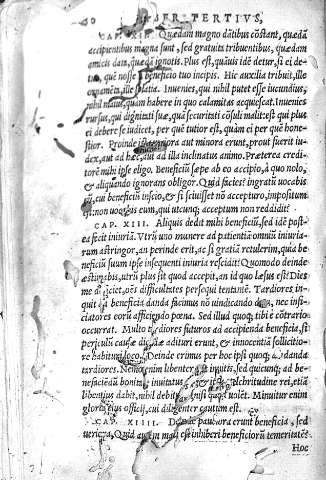 40 LIBER TERTIVS,
CAP. XII. Quædam magno dātibus cōstant, quædā
accipientibus magna sunt, sed gratuita tribuentibus, quædam
amicis data, quædā ignotis. Plus est, quāuis idē detur, si ei des,
quē nosse beneficio tuo incipis. Hic auxilia tribuit, ille
ornamēta, ille solatia. Inuenies, qui nihil putet esse iucundius,
nihil maius, quàm habere in quo calamitas acquiescat. Inuenies
rursus, qui dignitati suæ, quà securitati cōsuli malit: est qui plus
ei debere se iudicet, per quē tutior est, quàm ei per quē hone-
stior. Proinde ista maiora aut minora erunt, prout fuerit iu-
dex, aut ad hæc, aut ad illa inclinatus animo. Præterea credi-
torē mihi ipse eligo. Beneficiū sæpe ab eo accipio, à quo nolo,
& aliquando ignorans obligor. Quid facies? ingratū vocabis
eū, cui beneficiū inscio, & si sciuisset nō accepturo, impositum
est: non vocabis eum, qui utcunq; acceptum non reddidit?
CAP. XIII. Aliquis dedit mihi beneficiū, sed idē post-
ea fecit iniuriā. Vtrū uno munere ad patientiā omniū iniuria-
rum astringor, an perinde erit, ac si gratiā retulerim, quia be-
neficiū suum ipse insequenti iniuria rescidit? Quomodo deinde
æstimabis, utrū plus sit quod accepit, an id quo læsus est? Dies
me deficiet, oēs difficultates persequi tentantē. Tardiores, in-
quit ad beneficia danda facimus nō uindicando data, nec infi-
ciatores eorū afficiendo pœna. Sed illud quoq; tibi è contrario
occurrat. Multo tardiores futuros ad accipienda beneficia, si
periculū causæ dicēdæ adituri erunt, & innocentiā sollicitio-
re habituri loco. Deinde erimus per hoc ipsi quoq; ad danda
tardiores. Nemo enim libenter dat inuitis, sed quicunq; ad be-
nefaciendū bonitate inuitatus est, & ipsa pulchritudine rei, etiā
libentius dabit, nihil debituris, nisi quod volēt. Minuitur enim
gloria eius officij, cui diligenter cautum est.
CAP. XIIII. Deinde pauciora erunt beneficia, sed
veriora, Quid autem mali est inhiberi beneficiorū temeritatē?
Hoc